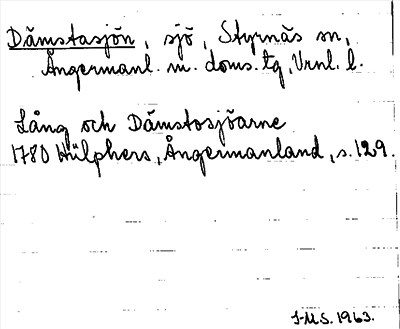 Dämstasjön, sjö, Styrnäs sn,
Ångermanl. m. doms. tg, Vrnl. l.
Lång och Dämstosjöarne
1780 Hülphers, Ångermanland, s. 129.
I-M.S. 1963.